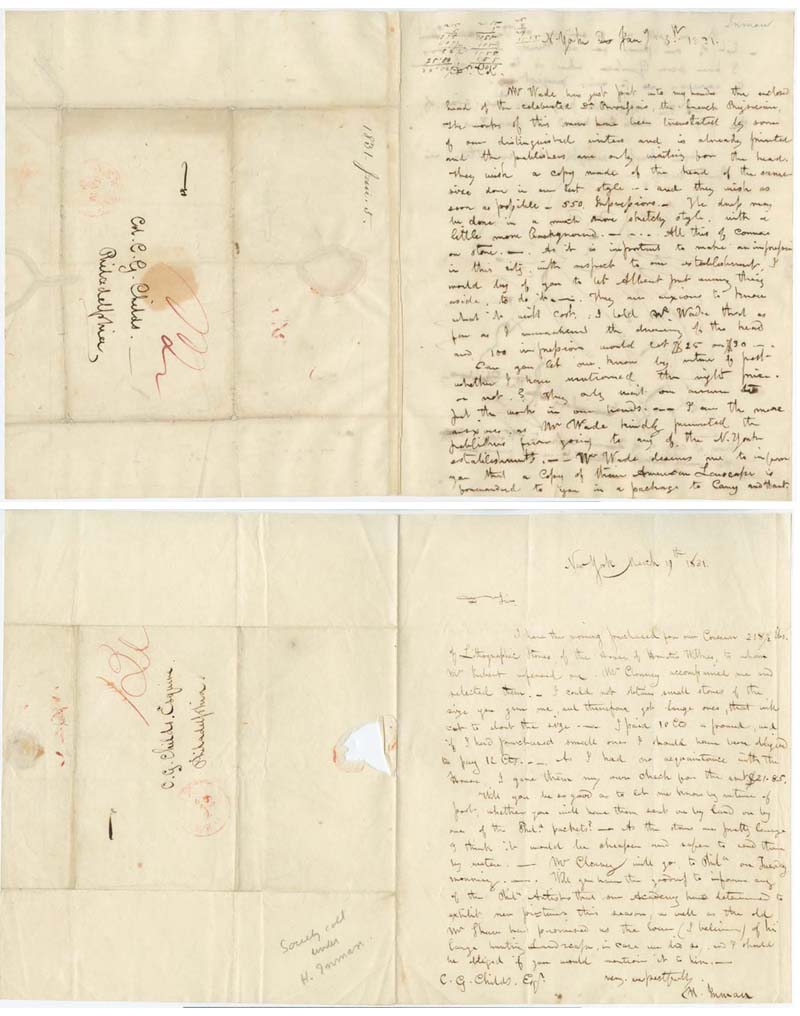 Inman
N. York Jany 5th 1831.
Col.
Mr Wade has just put into my hands the enclosed
head of the celebrated Dr Broussais, the french Physician,
The works of this man have been translated by some
of our distinguished writers and is already printed
and the publishers are only waiting for the head.
They wish a copy made of the head of the same
size done in our best style - and they wish as
soon as possible - 550 Impressions. - The dress may
be done in a much more sketchy style, with a
little more background. - All this of course
on stone. - As it is important to make an impression
in this city, with respect to our establishment, I
would beg of you to let Albert put every thing
aside, to do it. - They are anxious to know
what it will cost. I told Mr. Wade that as
far as I remembered the drawing of the head
and 100 impressions would cost $25 or $30 -
Can you let me know by return of post
whether I have mentioned the right price
or not? They only wait our answer to
put the work in our hands. - I am the more
anxious, as Mr Wade kindly prevented the
publishers from going to any of the N. York
establishments. - Mr Wade desires me to inform
you that a Copy of their American Lanscape is
forwarded to you in a package to Carey and Hart.
1831 Jan. 5.
Col. C. G. Childs.
Philadelphia
New York March 19th 1831.
Sir
I have this morning purchased for our Concern 218½ lbs.
of Lithographic Stones of the House of to whom
Mr referred me. Mr Clonney accompanied me and
selected them. - I could not obtain small stones of the
size you gave me, and therefore got large ones, that will
cut to about the size. - I paid 10 Cts a pound, and
if I had purchased small ones I should have been obliged
to pay 12 Cts. - As I had no acquaintance with the
House I gave them my own check for the amt $21.85.
Will you be so good as to let me know by return of
post, whether you will have them sent on by land or by
one of the Phila packets? - As the stones are pretty large
I think it would be cheaper and safer to send them
by water. - Mr Clonney will go to Phila on Tuesday
morning. - Will you have the goodness to inform any
of the Phila Artists that our Academy have determined to
exhibit new pictures this season, as well as the old
Mr Shaw had promised us the loan (I believe) of his
large hunting Landscape, in case we did so, and I should
be obliged if you would mention it to him. -
C. G. Childs. Esqr.
very respectfully
H. Inman
C. G. Childs. Esquire
Philadelphia.
Society coll
under
H. Inman.